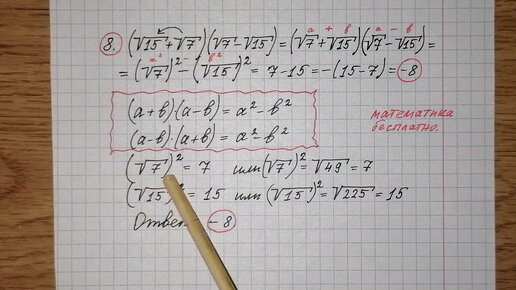 8. (√15 + √7)(√7 − √15) = (√7 + √15)(√7 − √15) =
= (√7)² − (√15)² = 7 − 15 = −(15 − 7) = −8
(а + в)·(а − в) = а² − в²
(а − в)·(а + в) = а² − в²
математика
бесплатно.
(√7)² = 7 или (√7)² = √49 = 7
(√15)² = 15 или (√15)² = √225 = 15
Ответ −8